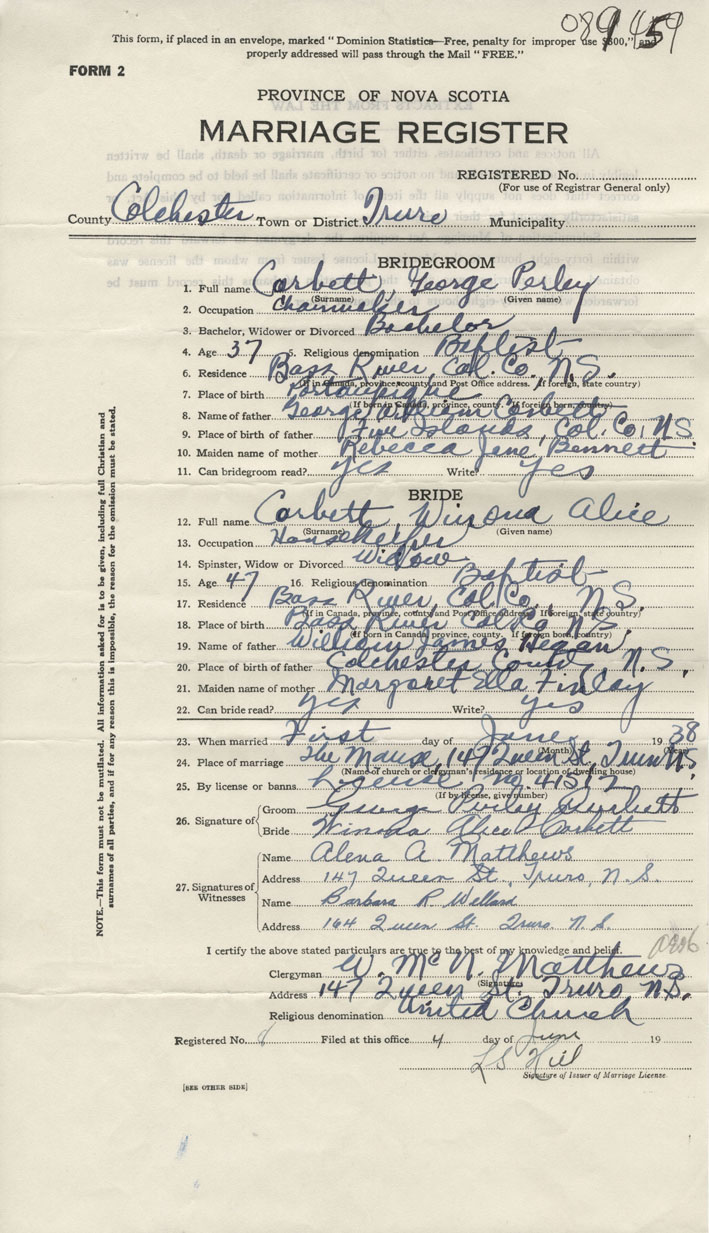 This form, if placed in an envelope, marked " Dominion Statistics—Free, penalty for improper use $300," and
properly addressed will pass through the Mail " FREE."
FORM 2
PROVINCE OF NOVA SCOTIA
MARRIAGE REGISTER
REGISTERED No.
(For use of Registrar General only)
County Colchester Town or District Truro Municipality
BRIDEGROOM
1. Full name Corbett, George Perley
(Surname) (Given name)
2. Occupation Chairmaker
3. Bachelor, Widower or Divorced Bachelor
4. Age 37 5. Religious denomination Baptist
6. Residence Bass River, Col. Co. N.S.
(If in Canada, province, county and Post Office address. If foreign, state country)
7. Place of birth Portaupique
(If born in Canada, province, county. If foreign born, country)
8. Name of father George William Corbett
9. Place of birth of father Five Islands, Col. Co, N.S.
10. Maiden name of mother Rebecca Jane Bennett
11. Can bridegroom read? yes Write? yes
BRIDE
12. Full name Corbett, Winona Alice
(Surname) (Given name)
13. Occupation Housekeeper
14. Spinster, Widow or Divorced Widow
15. Age 47 16. Religious denomination Baptist
17. Residence Bass River, Col. Co., N.S.
(If in Canada, province, county and Post Office address. If foreign, state country)
18. Place of birth Bass River Col. Co N.S.
(If born in Canada, province, county. If foreign born, country)
19. Name of father William James Hegan
20. Place of birth of father Colchester County N.S.
21. Maiden name of mother Margaret Ella Finlay
22. Can bride read? yes Write? yes
23. When married First day of June 1938
(Month) (Year)
24. Place of marriage The Manse, 147 Queen St, Truro N.S.
(Name of church or clergyman's residence or location of dwelling house)
25. By license or banns License No.
(If by license, give number)
26. Signature of
Groom George Perley Corbett
Bride Winona Alice Corbett
27. Signatures of Witnesses
Name Alena A. Matthews
Address 147 Queen St., Truro, N.S.
Name Barbara R Willard
Address 164 Queen St. Truro. N.S.
I certify the above stated particulars are true to the best of my knowledge and belief.
Clergyman W. McN. Matthews
(Signature)
Address 147 Queen St. Truro N.S.
Religious denomination United Church
Registered No. 8 Filed at this office 4 day of June 19
Signature of Issuer of Marriage License
[SEE OTHER SIDE]
NOTE.—This form must not be mutilated. All information asked for is to be given, including full Christian and
surnames of all parties, and if for any reason this is impossible, the reason for the omission must be stated.